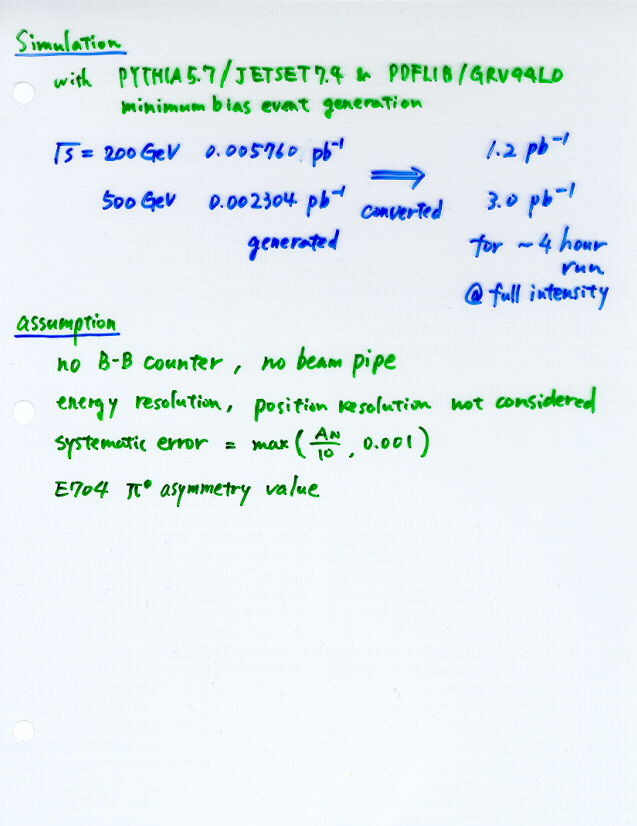 Simulation
with PYTHIA5.7/JETSET7.4 & PDFLIB/GRV94LO
minimum bias event generation
√s = 200 GeV 0.005760 pb⁻¹ ⟹ 1.2 pb⁻¹
500 GeV 0.002304 pb⁻¹ converted 3.0 pb⁻¹
generated for ~4 hour
run
@ full intensity
assumption
no B-B counter, no beam pipe
energy resolution, position resolution not considered
systematic error = max(AN/10, 0.001)
E704 π⁰ asymmetry value